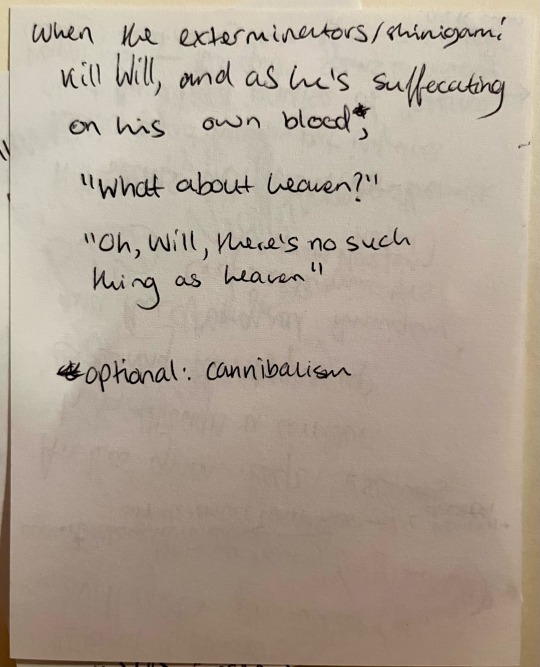 when the exterminators/shinigami
kill Will, and as he's suffecating
on his own blood*,
"What about heaven?"
"Oh, Will, there's no such
thing as heaven"
*optional: cannibalism